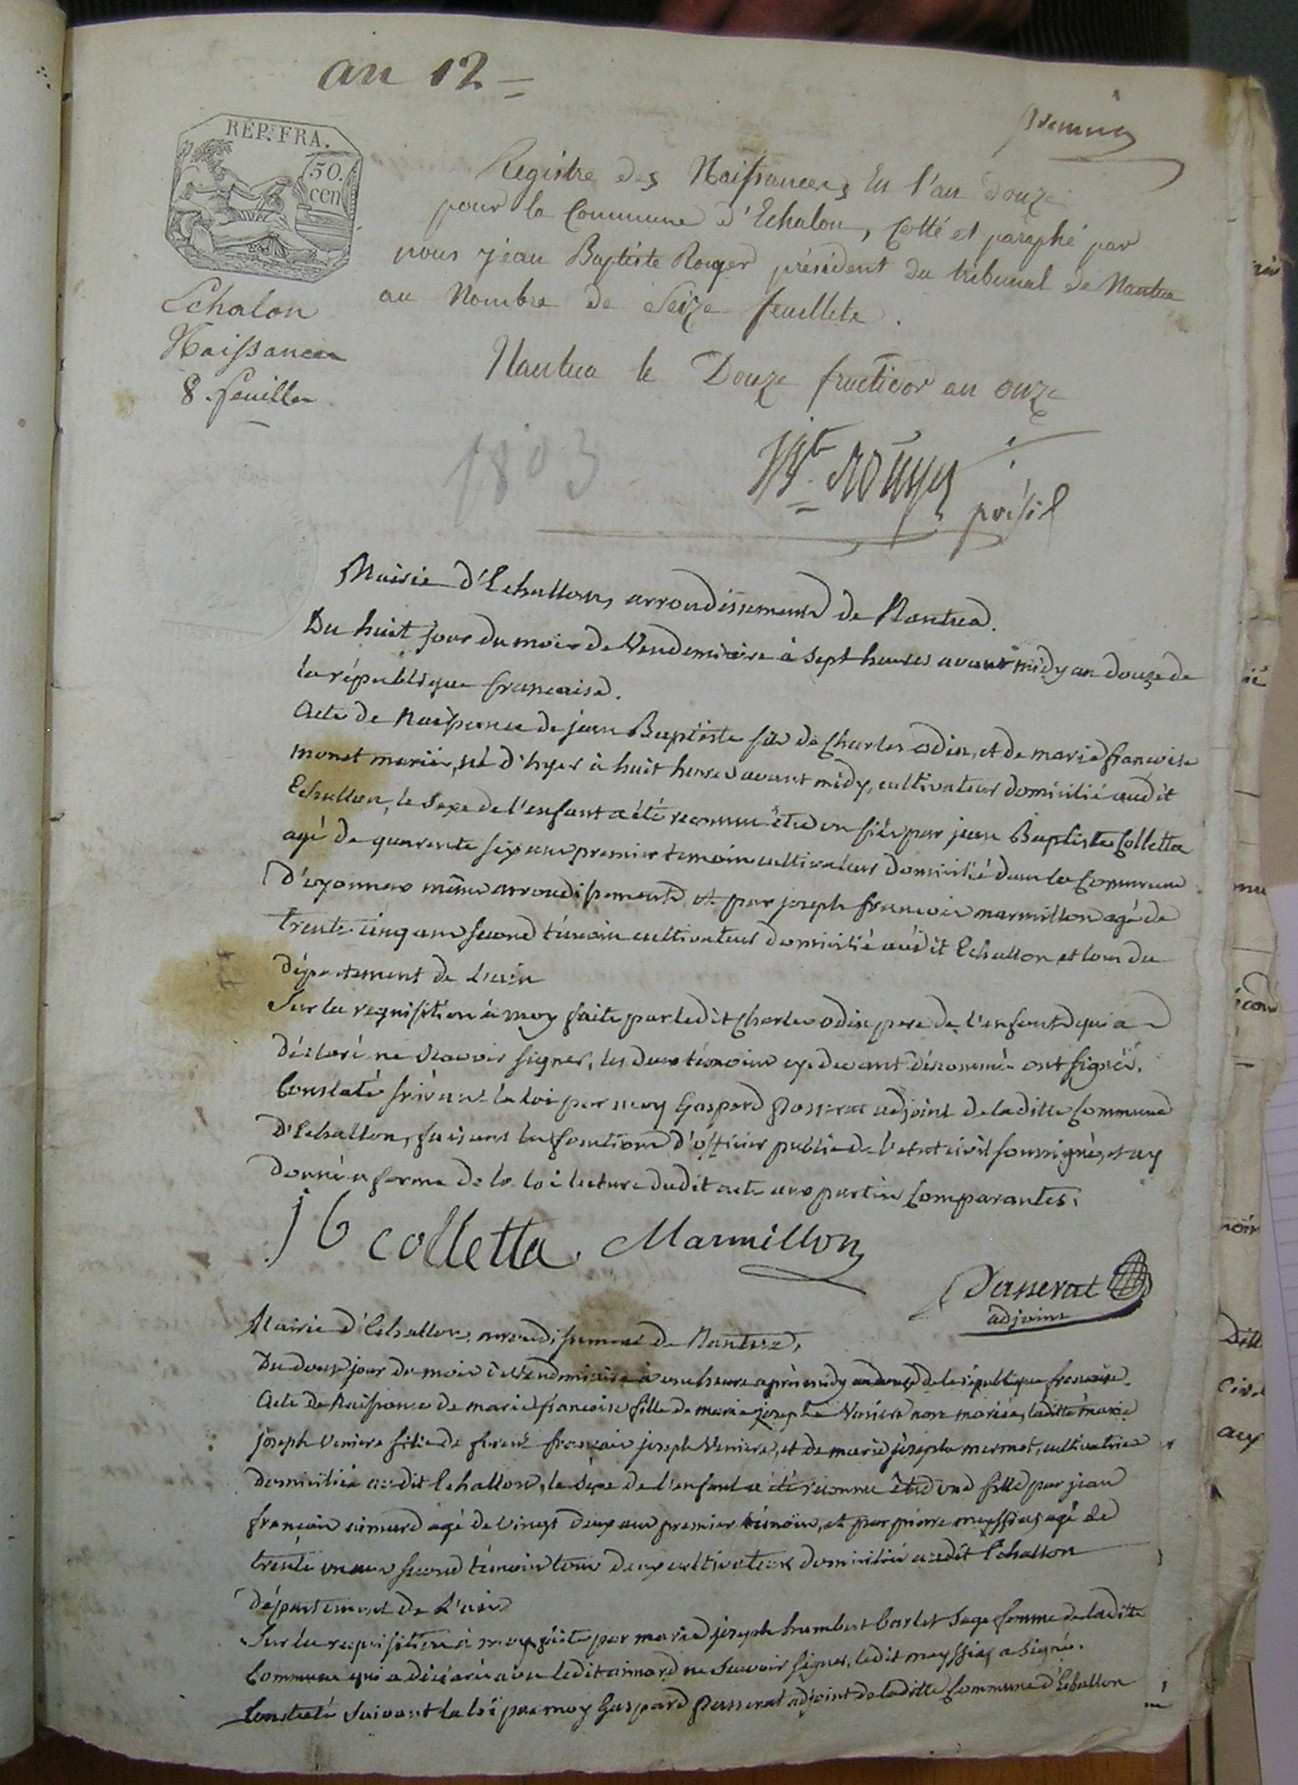 an 12
premier
REP. FRA.
50.
cen
Registre des Naissances En l'an Douze
pour la Commune d'Echalon, Cotté et paraphé par
nous jean Baptiste Rouyer président du tribunal de Nantua
au Nombre de Seize feuillets.
Echalon
Naissances
8. feuilles
Nantua le Douze fructidor an onze
1803
Bte Rouyer présid
Mairie d'Echallon, arrondissement de Nantua.
Du huit jour du mois de Vendemiaire à sept heures avant midy an douze de
la république française.
Acte de Naissance de jean Baptiste fils de Charles odin, et de marie françoise
monet mariés, né d'hyer à huit heures avant midy, cultivateur domicilié audit
Echallon, le sexe de l'enfant a été reconnu être un fils par jean Baptiste Colletta
agé de quarente six ans premier temoin cultivateur domicilié dans la Commune
d'oyonnax même arrondissement et par joseph françois marmillon agé de
trente cinq ans second témoin cultivateur domicilié audit Echallon, et tous du
département de l'ain
Sur la requisition à moy faite par ledit Charles odin pere de l'enfant qui a
déclaré ne scavoir signer, les deux témoins cy devant dénommés ont signés.
Constaté suivant la loi par moy Gaspard Passerat adjoint de laditte Commune
d'Echallon, faisant les fonctions d'officier public de l'etat civil soussigné, et ay
donné en forme de la loi lecture dudit acte aux parties comparantes.
J b colletta. Marmillon
Passerat
adjoint
Mairie d'Echallon, arrondissement de Nantua,
Du douze jour du mois de Vendmiaire à une heure après midy an douze de la république française.
Acte de Naissance de marie françoise fille de marie josephe Veniere non mariée, laditte marie
joseph Veniere fille de françois joseph Veniere, et de marie josephe mermet, cultivatrice
domiciliée audit Echallon, le sexe de l'enfant a été reconnu être une fille par jean
françois aimard agé de vingt deux ans premier témoin, et par pierre meyssiaz agé de
trente un ans second témoin tous deux cultivateurs domiciliés audit Echallon
département de l'ain
Sur la requisition à moy faite par marie joseph humbert barlet sage femme de laditte
Commune qui a déclaré avec ledit aimard ne scavoir signer, ledit meyssiaz a signé.
Constaté suivant la loi par moy Gaspard Passerat adjoint de laditte Commune d'Echallon